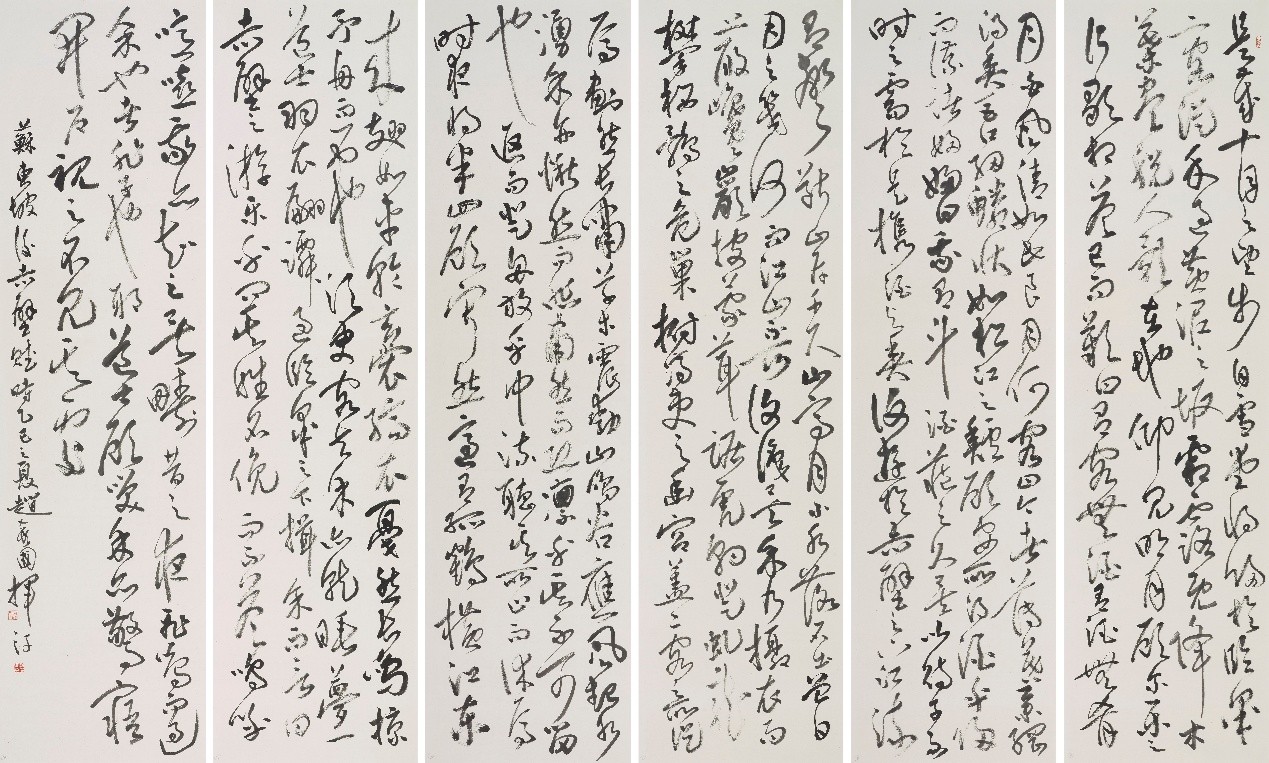 是歲十月之望步自雪堂將歸於臨皋
二客從余過黃泥之坂霜露既降木
葉盡脫人影在地仰見明月顧而樂之
行歌相答已而歎曰有客無酒有酒無肴
月白風清如此良夜何客曰今者薄莫舉網
得魚巨口細鱗狀如松江之鱸顧安所得酒乎歸
而謀諸婦婦曰我有斗酒藏之久矣以待子不
時之需於是攜酒與魚復遊於赤壁之下江流
有聲斷岸千尺山高月小水落石出曾日
月之幾何而江山不可復識矣余乃攝衣而
上履巉巖披蒙茸踞虎豹登虬龍
攀栖鶻之危巢俯馮夷之幽宮蓋二客不能從
焉劃然長嘯草木震動山鳴谷應風起水
湧余亦悄然而悲肅然而恐凜乎其不可留
也返而登舟放乎中流聽其所止而休焉
時夜將半四顧寂然適有孤鶴橫江東
來翅如車輪玄裳縞衣戛然長鳴掠
予舟而西也須臾客去余亦就睡夢一
道士羽衣翩躚過臨皋之下揖余而言曰
赤壁之游樂乎問其姓名俛而不答嗚呼
噫嘻我知之矣疇昔之夜飛鳴而過
余者非子也耶道士顧笑余亦驚寤
開戶視之不見其處
蘇東坡後赤壁賦時乙巳之夏趙國揮汗